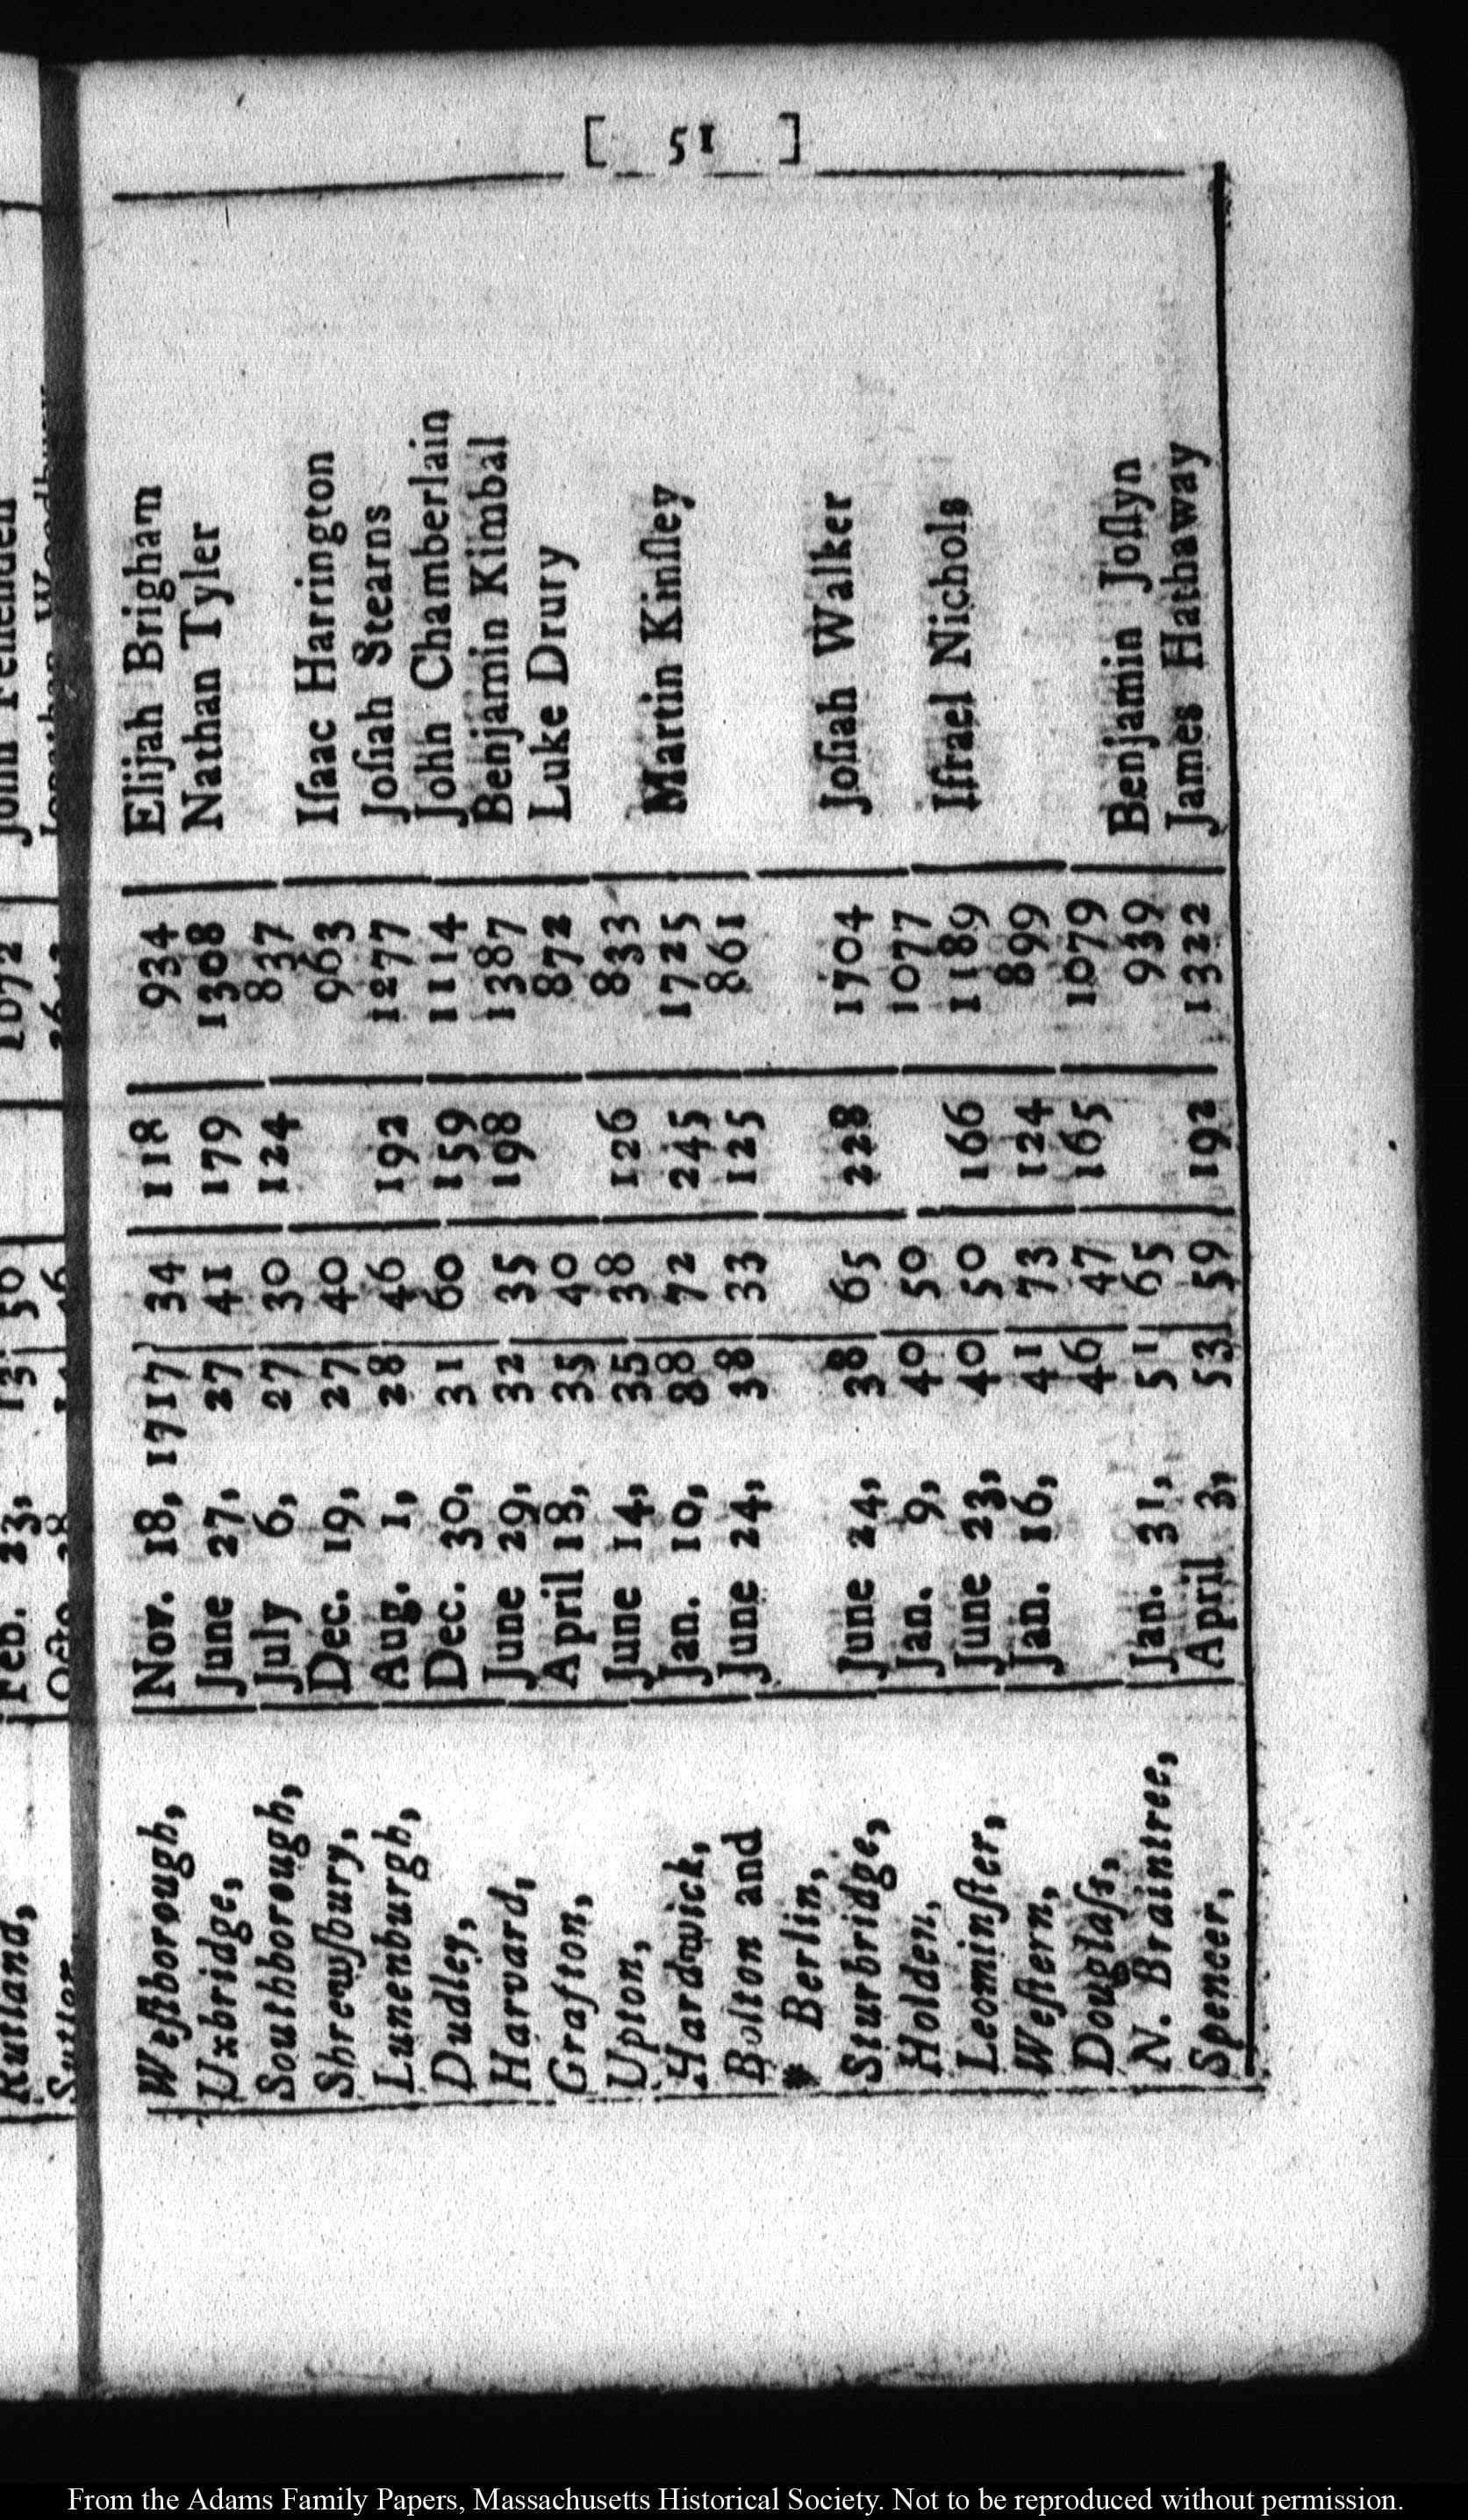 [ 51 ]
Rutland, Feb. 23,
Weſtborough, Nov. 18, 1717 34 118 934 Elijah Brigham
Uxbridge, June 27, 27 41 179 1308 Nathan Tyler
Southborough, July 6, 27 30 124 837
Shrewſbury, Dec. 19, 27 40 963 Iſaac Harrington
Lunenburgh, Aug. 1, 28 46 192 1277 Joſiah Stearns
Dudley, Dec. 30, 31 60 159 1114 John Chamberlain
Harvard, June 29, 32 35 198 1387 Benjamin Kimbal
Grafton, April 18, 35 40 872 Luke Drury
Upton, June 14, 35 38 126 833
Hardwick, Jan. 10, 88 72 245 1725 Martin Kinſley
Bolton and June 24, 38 33 125 861
* Berlin,
Sturbridge, June 24, 38 65 228 1704 Joſiah Walker
Holden, Jan. 9, 40 50 1077
Leominſter, June 23, 40 50 166 1189 Iſrael Nichols
Weſtern, Jan. 16, 41 73 124 899
Douglaſs, 46 47 165 1079
N. Braintree, Jan. 31, 51 65 939 Benjamin Joſlyn
Spencer, April 3, 53 59 192 1322 James Hathaway
From the Adams Family Papers, Massachusetts Historical Society. Not to be reproduced without permission.